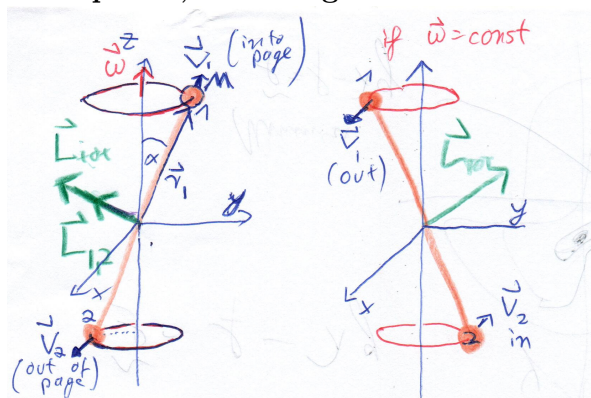 z
ω
V₁ (into page)
m
1
α
r₁
L tot
L 1,2
y
x
2
V₂
(out of page)
if ω = const
1
V₁
(out)
L tot
y
x
2
V₂
in